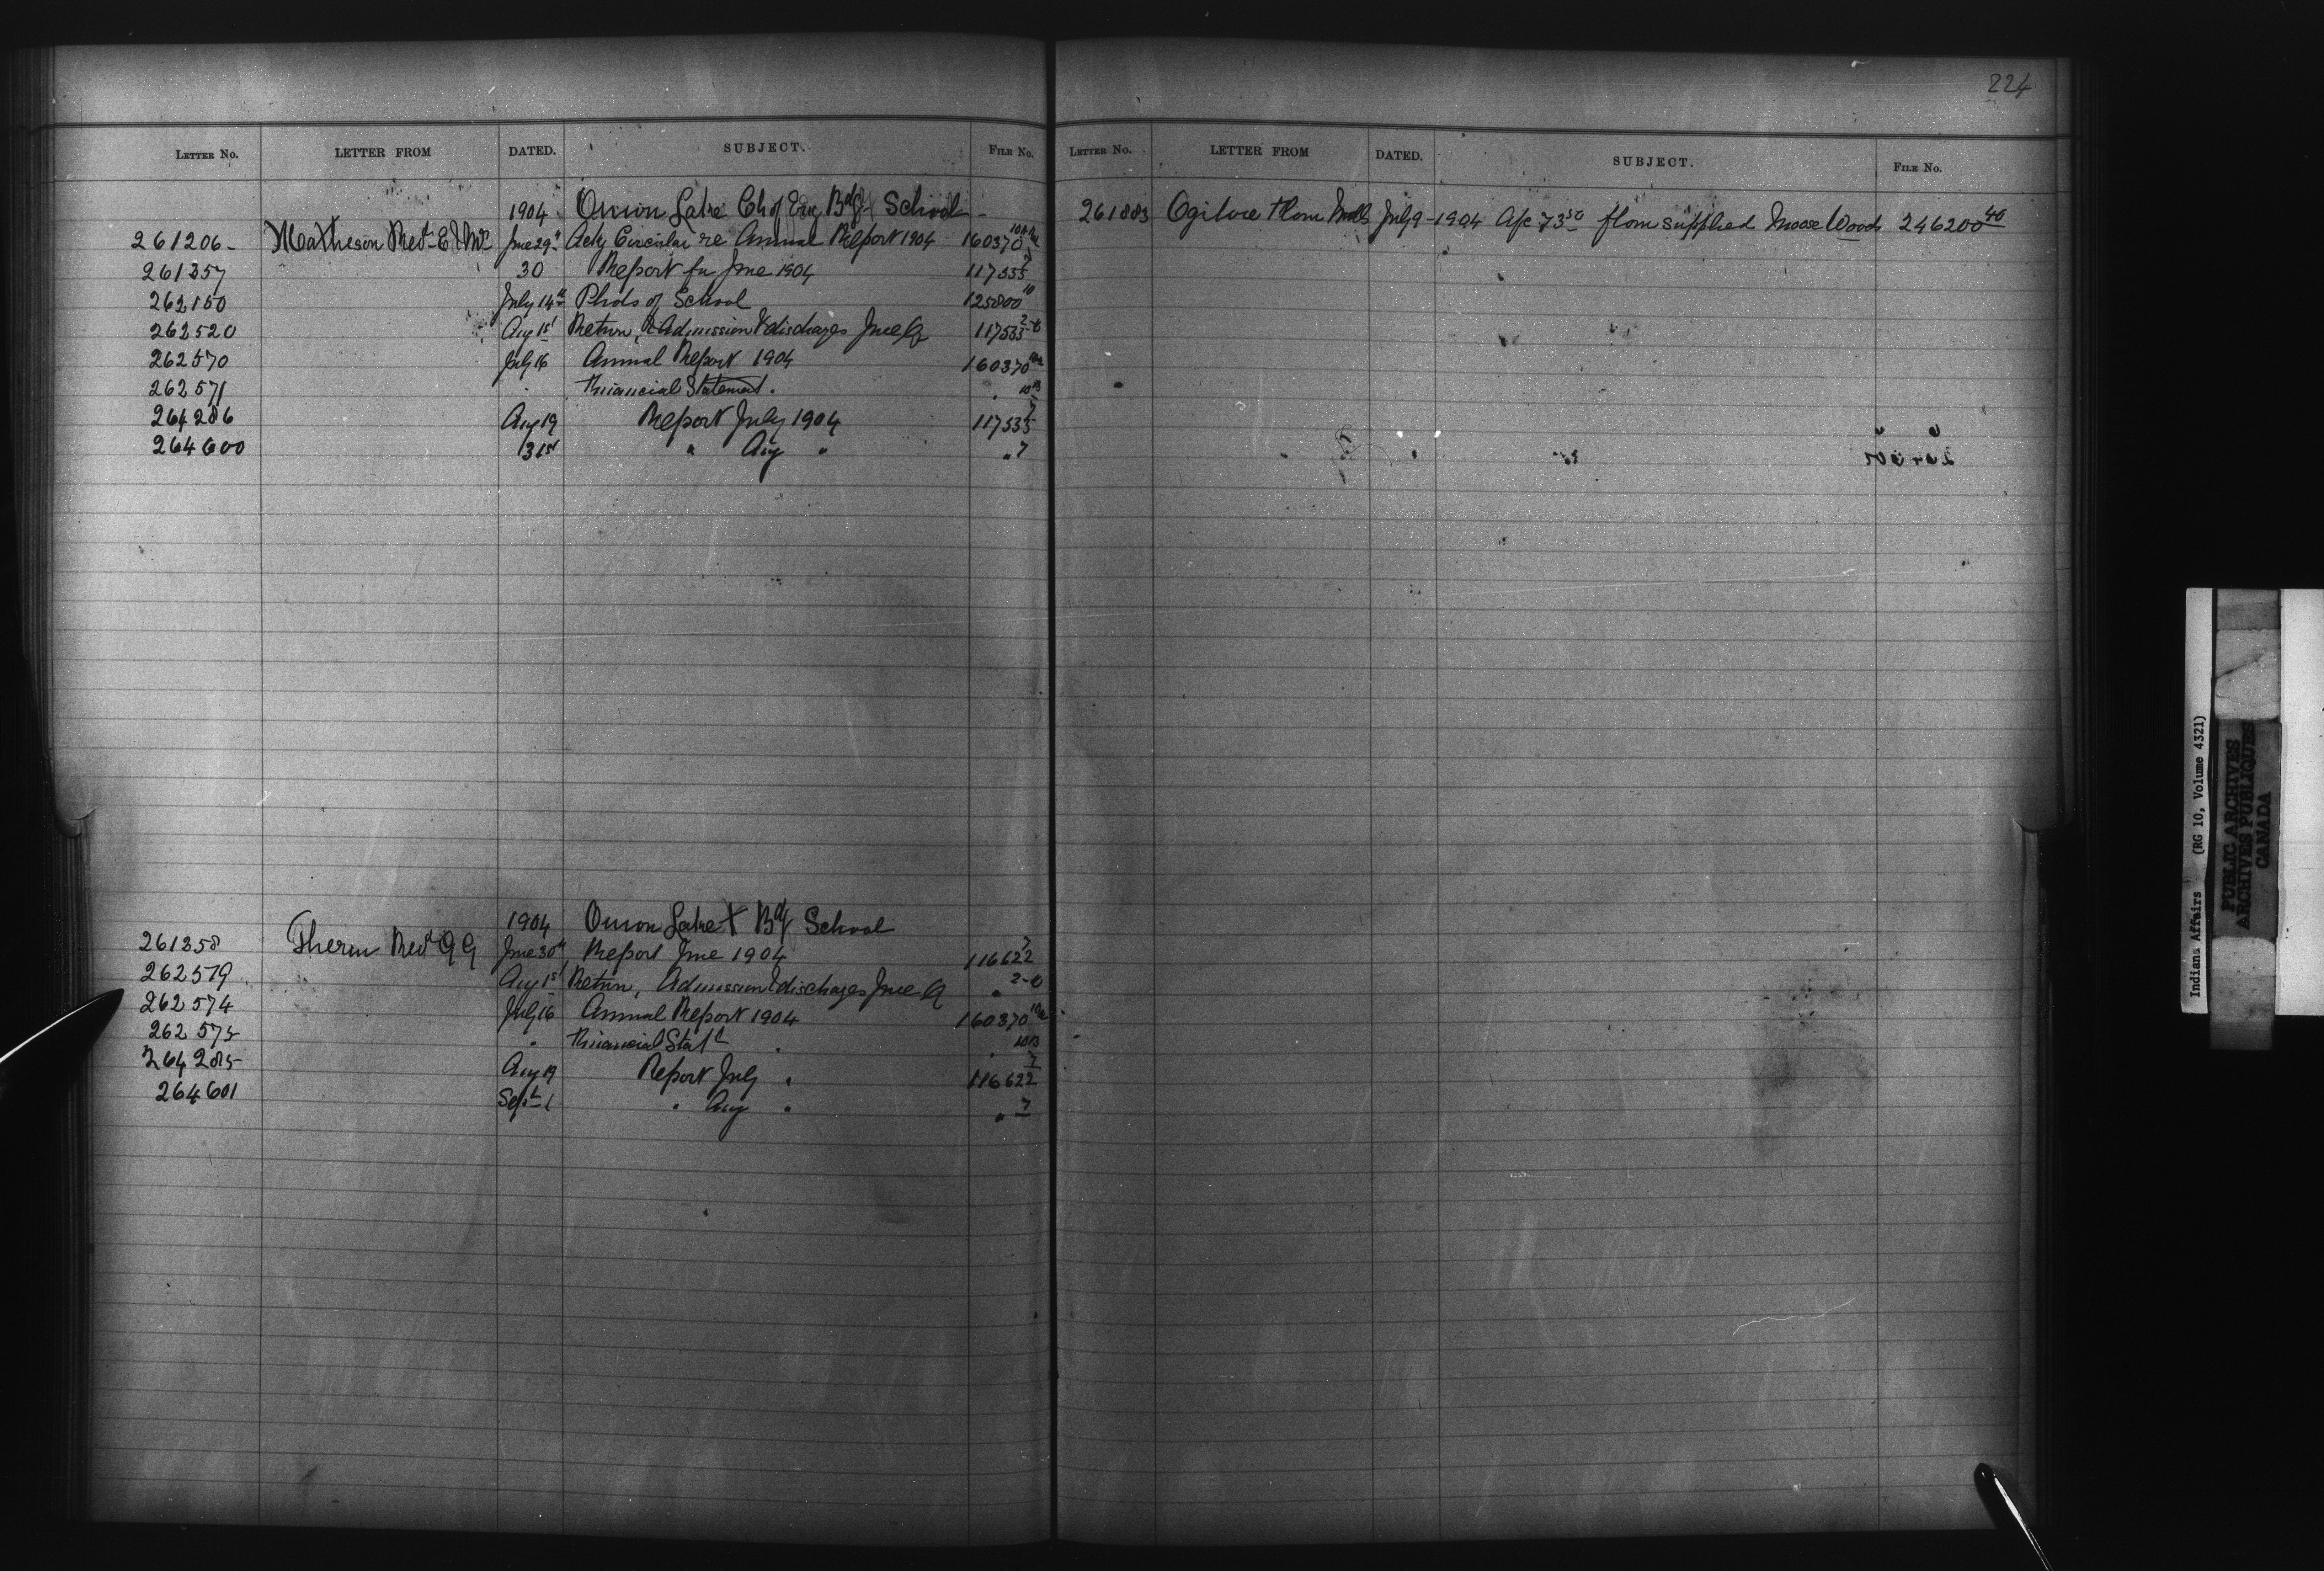 224
LETTER NO. LETTER FROM DATED. SUBJECT. FILE No.
1904 Onion Lake Ch of Eng Bdg School
261206 Matheson Revd E & Mrs June 29th Ackg Circular re Annual Report 1904 160370
261357 30 Report for June 1904 117535 7
262150 July 14th Phds of School 125800 10
262520 Aug 1st Return, Admission & discharges June Q 117535 2-6
262570 July 16 Annual Report 1904 160370 10a
262571 " Financial Statement " " 10B
264286 Aug 19 Report July 1904 117535 7
264600 31st " Aug " " 7
1904 Onion Lake Bdg School
261358 Therien Revd June 30th Report June 1904 116622 7
262519 Aug 1st Return, Admission & discharges June Q " 2-6
262574 July 16 Annual Report 1904 160370 10a
262575 " Financial Statt " " 10B
264285 Aug 19 Report July " 116622 7
264601 Sept 1 " Aug " " 7
LETTER NO. LETTER FROM DATED. SUBJECT. FILE No.
261883 Ogilvie Flour Mills July 9-1904 A/c 73 50 flour supplied Moose Woods 246200 40
Indians Affairs (RG 10, Volume 4321)
PUBLIC ARCHIVES
ARCHIVES PUBLIQUES
CANADA